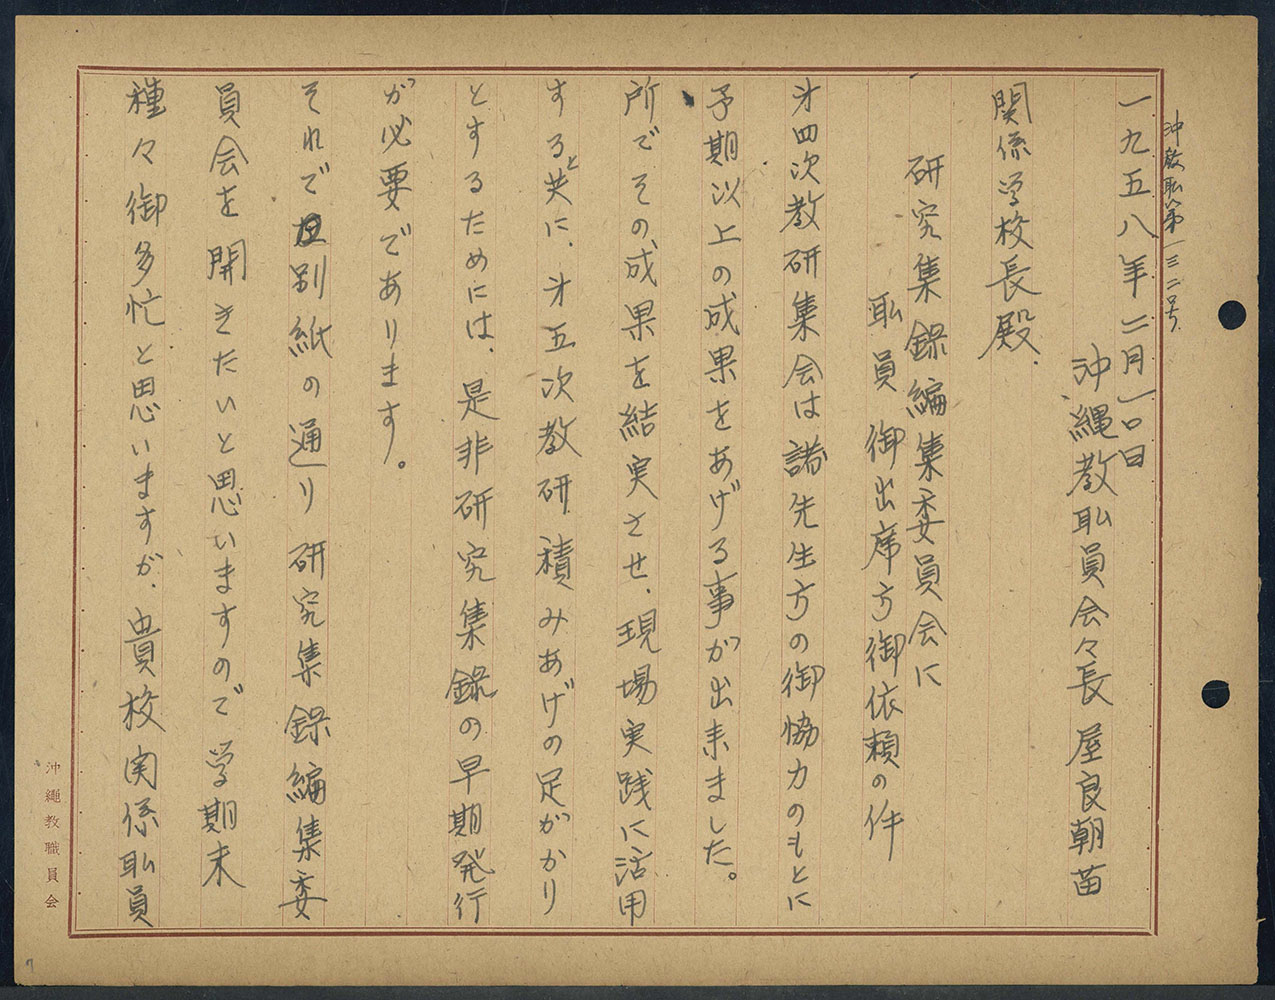 沖教耺第一三二号
一九五八年二月一〇日
沖縄教耺員会々長 屋良朝苗
関係学校長殿.
研究集録編集委員会に
耺員御出席方御依頼の件
才四次教研集会は諸先生方の御協力のもとに
予期以上の成果をあげる事が出来ました。
所でその成果を結実させ、現場実践に活用
すると共に、才五次教研積みあげの足がかり
とするためには、是非研究集録の早期発行
が必要であります。
それで別紙の通り研究集録編集委
員会を開きたいと思いますので学期末
種々御多忙と思いますが、貴校関係耺員
沖縄教職員会